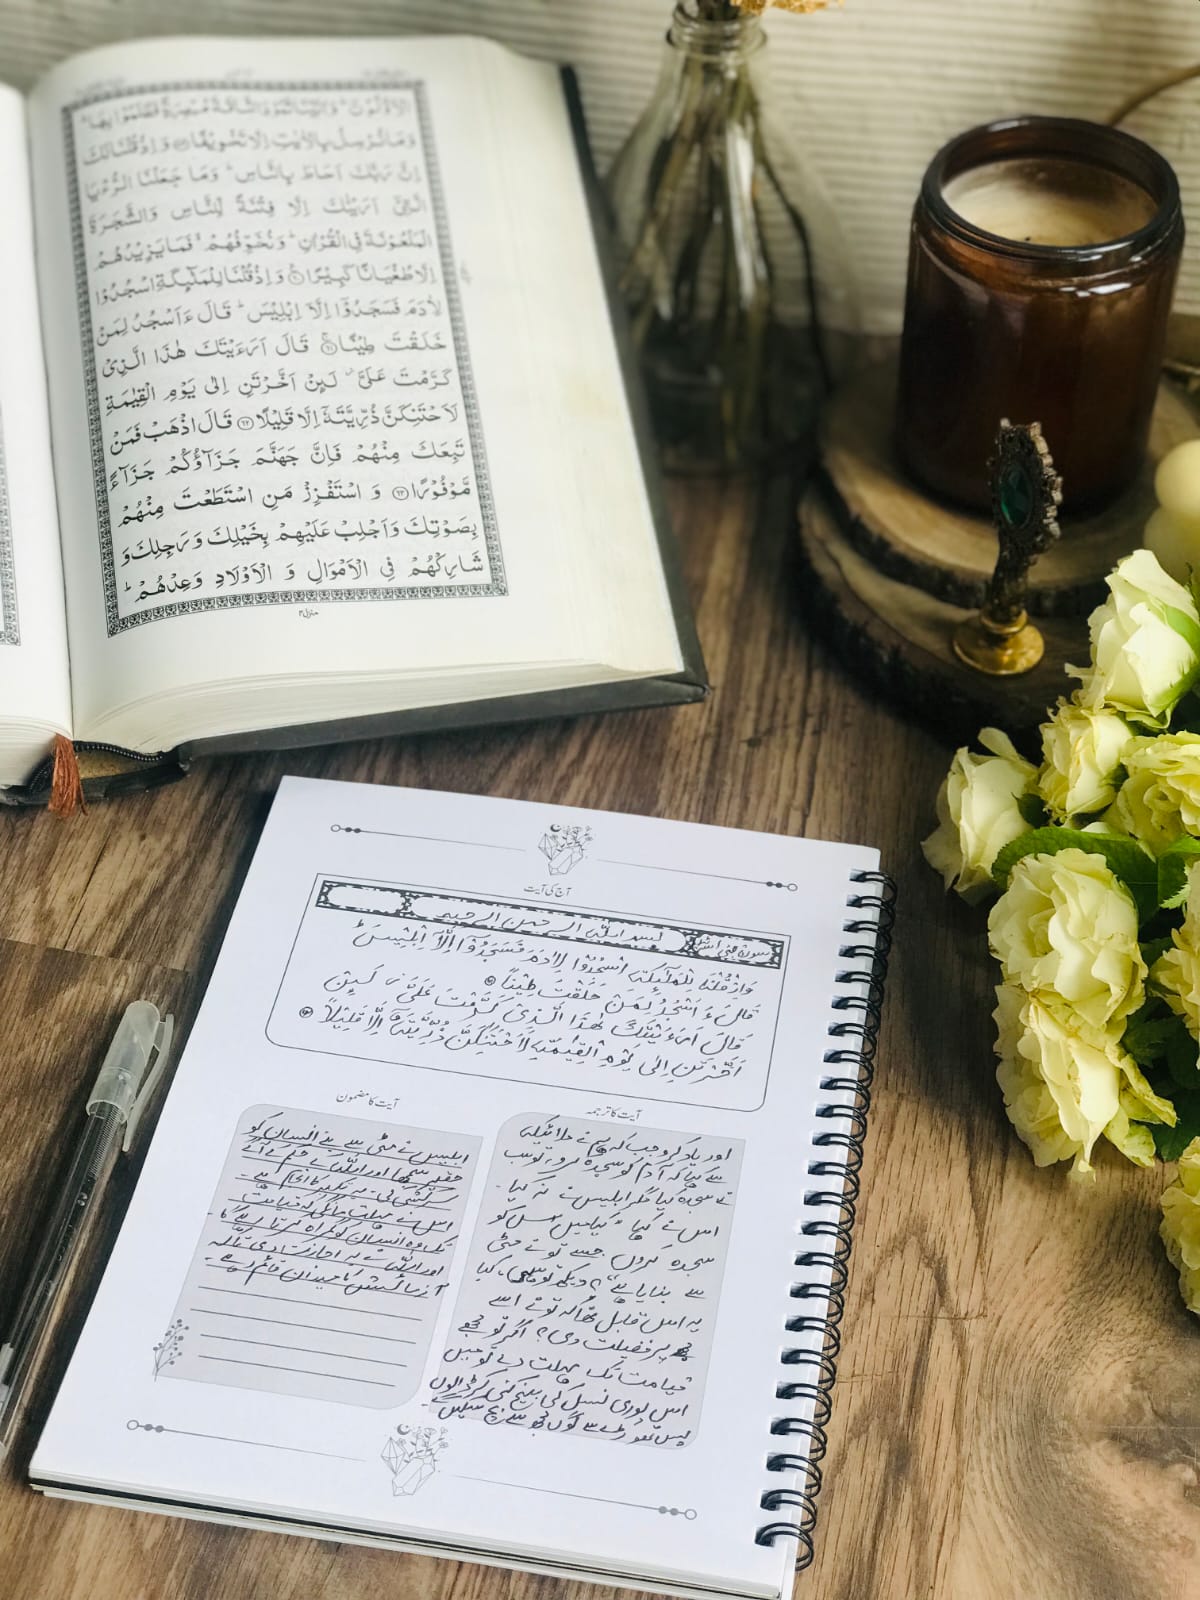 الْاَوَّلُوْنَ ؕ وَاٰتَيْنَا ثَمُوْدَ النَّاقَةَ مُبْصِرَةً فَظَلَمُوْا بِهَا ؕ
وَمَا نُرْسِلُ بِالْاٰيٰتِ اِلَّا تَخْوِيْفًا ۝ وَاِذْ قُلْنَا لَكَ
اِنَّ رَبَّكَ اَحَاطَ بِالنَّاسِ ؕ وَمَا جَعَلْنَا الرُّءْيَا
الَّتِيْٓ اَرَيْنٰكَ اِلَّا فِتْنَةً لِّلنَّاسِ وَالشَّجَرَةَ
الْمَلْعُوْنَةَ فِي الْقُرْاٰنِ ؕ وَنُخَوِّفُهُمْ ۙ فَمَا يَزِيْدُهُمْ
اِلَّا طُغْيَانًا كَبِيْرًا ۝۶۰ وَاِذْ قُلْنَا لِلْمَلٰٓئِكَةِ اسْجُدُوْا
لِاٰدَمَ فَسَجَدُوْٓا اِلَّآ اِبْلِيْسَ ؕ قَالَ ءَاَسْجُدُ لِمَنْ
خَلَقْتَ طِيْنًا ۝۶۱ قَالَ اَرَءَيْتَكَ هٰذَا الَّذِيْ
كَرَّمْتَ عَلَيَّ ؗ لَىِٕنْ اَخَّرْتَنِ اِلٰى يَوْمِ الْقِيٰمَةِ
لَاَحْتَنِكَنَّ ذُرِّيَّتَهٗٓ اِلَّا قَلِيْلًا ۝۶۲ قَالَ اذْهَبْ فَمَنْ
تَبِعَكَ مِنْهُمْ فَاِنَّ جَهَنَّمَ جَزَآؤُكُمْ جَزَآءً
مَّوْفُوْرًا ۝۶۳ وَاسْتَفْزِزْ مَنِ اسْتَطَعْتَ مِنْهُمْ
بِصَوْتِكَ وَاَجْلِبْ عَلَيْهِمْ بِخَيْلِكَ وَرَجِلِكَ وَ
شَارِكْهُمْ فِي الْاَمْوَالِ وَ الْاَوْلَادِ وَعِدْهُمْ ؕ
منزل۴
آج کی آیت
سورۃ بنی اسرائیل
بسم اللہ الرحمن الرحیم
وَاِذْ قُلْنَا لِلْمَلٰٓئِكَةِ اسْجُدُوْا لِاٰدَمَ فَسَجَدُوْٓا اِلَّآ اِبْلِيْسَ ؕ
قَالَ ءَاَسْجُدُ لِمَنْ خَلَقْتَ طِيْنًا
قَالَ اَرَءَيْتَكَ هٰذَا الَّذِيْ كَرَّمْتَ عَلَيَّ لَئِنْ
اَخَّرْتَنِ اِلٰى يَوْمِ الْقِيٰمَةِ لَاَحْتَنِكَنَّ ذُرِّيَّتَهٗٓ اِلَّا قَلِيْلًا
آیت کا ترجمہ
اور یاد کرو جب کہ ہم نے ملائکہ
سے کہا کہ آدم کو سجدہ کرو، تو سب
نے سجدہ کیا مگر ابلیس نے نہ کیا۔
اس نے کہا "کیا میں اس کو
سجدہ کروں جسے تو نے مٹی
سے بنایا ہے"؟ دیکھ تو سہی، کیا
یہ اس قابل تھا کہ تو نے اسے
مجھ پر فضیلت دی؟ اگر تو مجھے
قیامت تک مہلت دے تو میں
اس پوری نسل کی بیخ کنی کر ڈالوں
بس تھوڑے سے لوگ مجھ سے بچ سکیں گے۔
آیت کا مضمون
ابلیس نے مٹی سے بنے انسان کو
حقیر سمجھا اور اللہ کے حکم کے آگے
سرکشی کی۔ یہ تکبر کا انجام ہے۔
اس نے مہلت مانگی کہ قیامت
تک وہ انسان کو گمراہ کرتا رہے گا۔
اور اللہ نے یہ اجازت دی تاکہ
آزمائش کا میدان قائم رہے۔